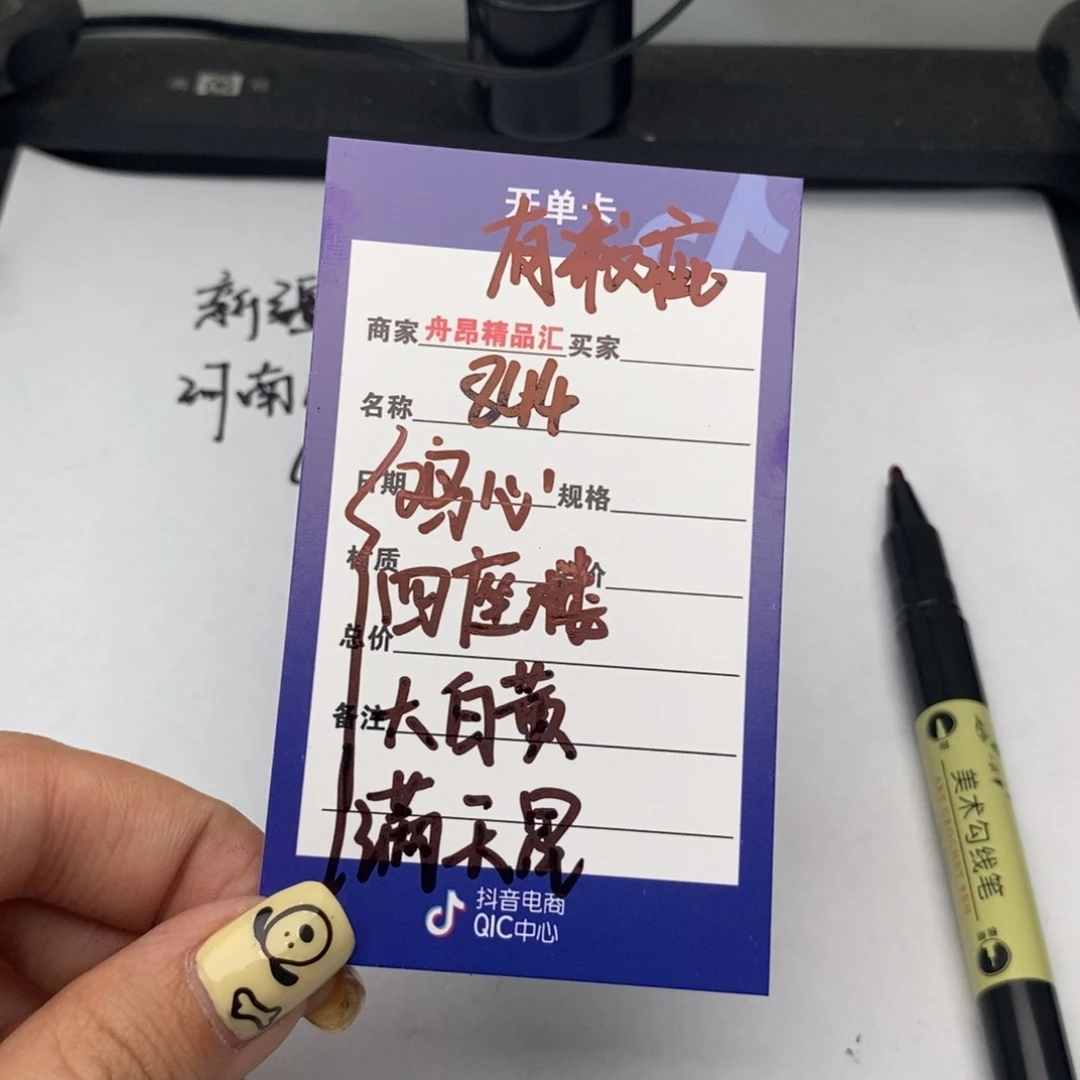 开单卡
有核疵
商家 舟昂精品汇 买家
名称 844
日期 鸡心 规格
材质 价
四座楼
总价
备注 大白黄
满天星
抖音电商
QIC中心
新疆
河南
美术勾线笔